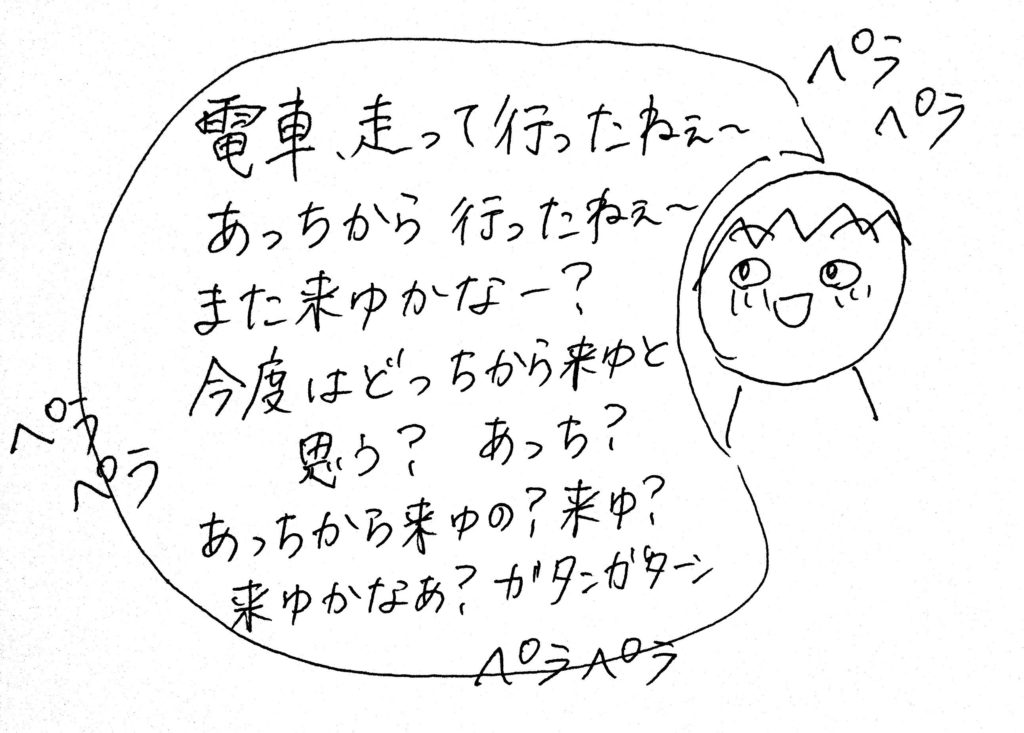 ペラ
ペラ
電車、走って行ったねぇ〜
あっちから行ったねぇ〜
また来ゆかなー?
今度はどっちから来ゆと
思う? あっち?
あっちから来ゆの?来ゆ?
来ゆかなあ?ガタンガターン
ペラ
ペラ
ペラペラ